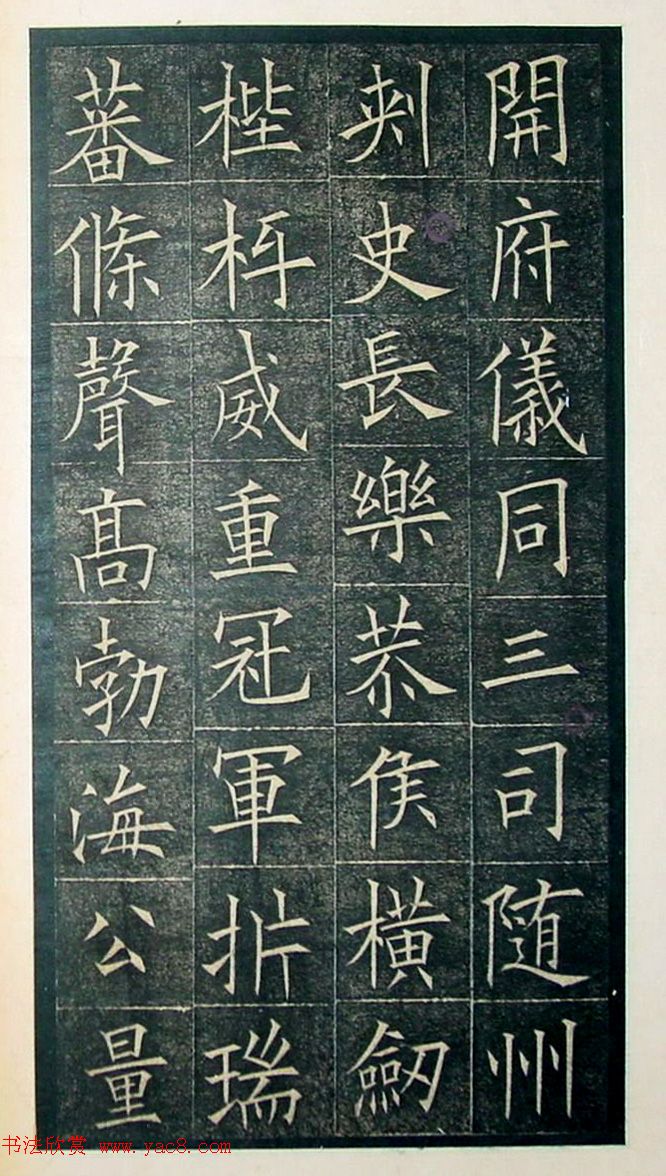 開府儀同三司随州
刾史長樂恭侯橫劒
梐枑威重冠軍扸瑞
蕃條聲髙勃海公量
书法欣赏 www.yac8.com